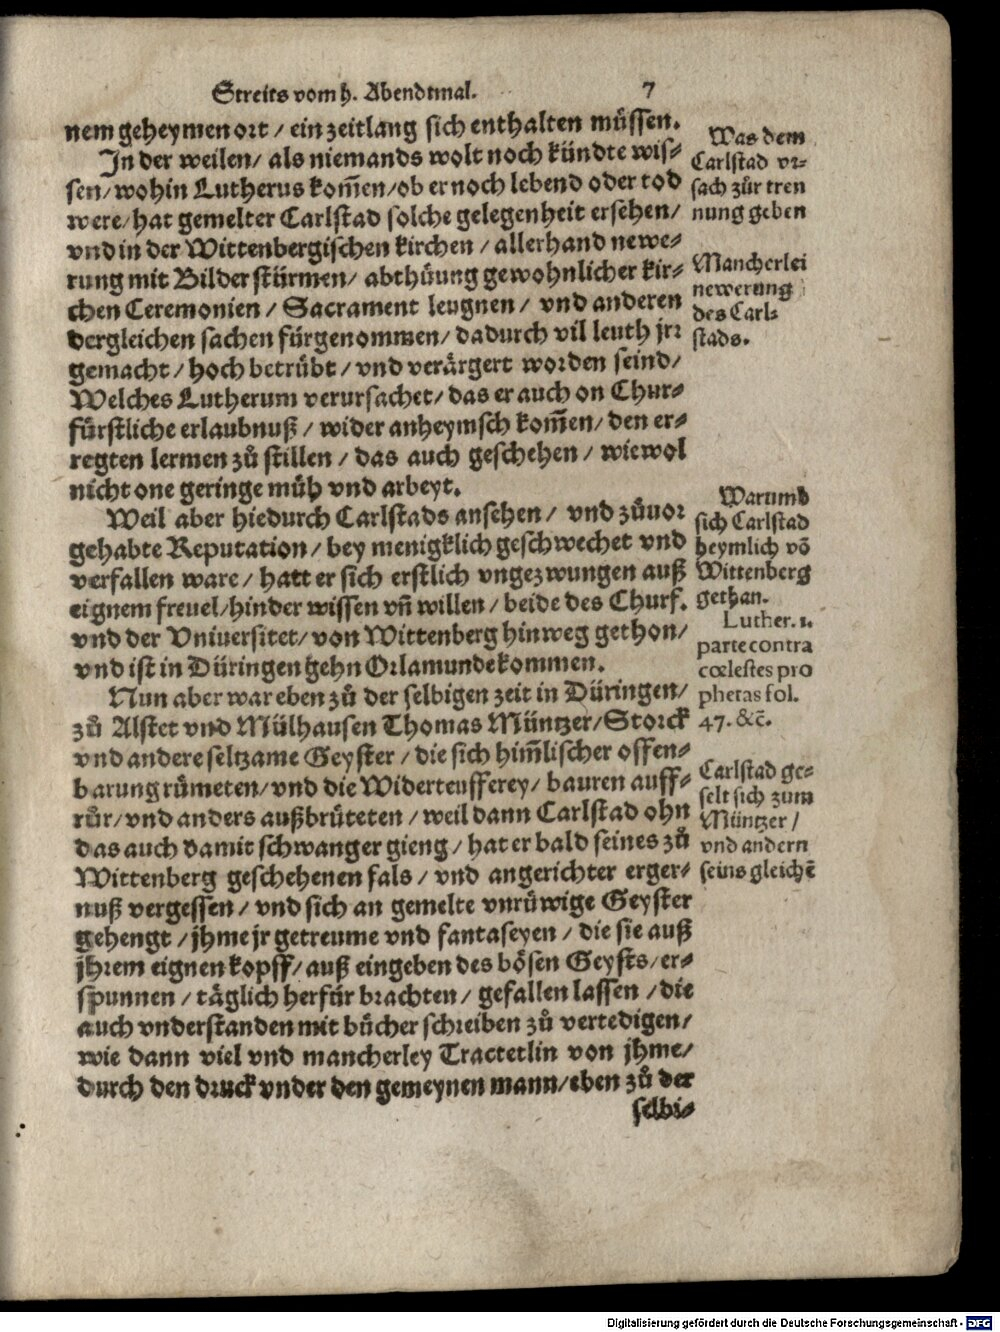 Streits vom h. Abendmal. 7
nem geheymen ort / ein zeitlang sich enthalten müssen.
In der weilen / als niemands wolt noch kündte wis⸗
sen / wohin Lutherus kom̃en / ob er noch lebend oder tod
were / hat gemelter Carlstad solche gelegenheit ersehen /
vnd in der Wittenbergischen kirchen / allerhand newe⸗
rung mit Bilder stürmen / abthüung gewohnlicher kir⸗
chen Ceremonien / Sacrament leugnen / vnd anderen
dergleichen sachen fürgenommen / dadurch vil leuth jrr
gemacht / hoch betrübt / vnd verärgert worden seind /
Welches Lutherum verursachet / das er auch on Chur⸗
fürstliche erlaubnuß / wider anheymsch kom̃en / den er⸗
regten lermen zů stillen / das auch geschehen / wiewol
nicht one geringe müh vnd arbeyt.
Weil aber hiedurch Carlstads ansehen / vnd zůuor
gehabte Reputation / bey menigklich geschwechet vnd
verfallen ware / hatt er sich erstlich vngezwungen auß
eignem freuel / hinder wissen vñ willen / beide des Churf.
vnd der Vniuersitet / von Wittenberg hinweg gethon /
vnd ist in Düringen gehn Orlamunde kommen.
Nun aber war eben zů der selbigen zeit in Düringen /
zů Alstet vnd Mülhausen Thomas Müntzer / Storck
vnd andere seltzame Geyster / die sich him̃lischer offen⸗
barung rümeten / vnd die Widerteufferey / bauren auff⸗
růr / vnd anders außbrüteten / weil dann Carlstad ohn
das auch damit schwanger gieng / hat er bald seines zů
Wittenberg geschehenen fals / vnd angerichter erger⸗
nuß vergessen / vnd sich an gemelte vnrüwige Geyster
gehengt / jhme jr getreume vnd fantaseyen / die sie auß
jhrem eignen kopff / auß eingeben des bösen Geysts / er⸗
spunnen / täglich herfür brachten / gefallen lassen / die
auch vnderstanden mit bücher schreiben zů vertedigen /
wie dann viel vnd mancherley Tractetlin von jhme /
durch den druck vnder den gemeynen mann / eben zů der
selbi⸗
Was dem
Carlstad vr⸗
sach zůr tren
nung geben
Mancherlei
newerung
des Carl⸗
stads.
Warumb
sich Carlstad
heymlich võ
Wittenberg
gethan.
Luther. 1.
parte contra
cœlestes pro
phetas fol.
47. &c̃.
Carlstad ge⸗
selt sich zum
Müntzer /
vnd andern
seins gleichẽ
Digitalisierung gefördert durch die Deutsche Forschungsgemeinschaft - DFG